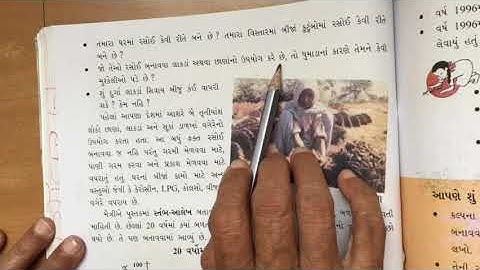 • તમારા ઘરમાં રસોઈ કેવી રીતે બને છે ? તમારા વિસ્તારમાં બીજાં કુટુંબોમાં રસોઈ કેવી રીતે
બને છે ?
• જો તેઓ રસોઈ બનાવવા લાકડાં અથવા છાણાંનો ઉપયોગ કરે છે, તો ધુમાડાનાં કારણે તેમને કેવી
મુશ્કેલીઓ પડે છે ?
• શું દુર્ગા લાકડાં સિવાય બીજું કંઈ વાપરી
શકે ? કેમ નહિ ?
પહેલાં આપણા દેશમાં આશરે બે તૃતીયાંશ
લોકો છાણાં, લાકડાં અને સૂકાં ડાળખાં વગેરેનો
ઉપયોગ કરતા હતા. આ બધું ફક્ત રસોઈ
બનાવવા જ નહિ પરંતુ ગરમી મેળવવા માટે,
પાણી ગરમ કરવા અને પ્રકાશ મેળવવા માટે
વપરાતું હતું. ઘરનાં બીજાં કામો માટે અન્ય
વસ્તુઓ જેવી કે કેરોસીન, LPG, કોલસો, વીજળી
વગેરે વપરાય છે.
મૈત્રીએ પુસ્તકમાં સ્તંભ-આલેખ
માહિતી છે. છેલ્લાં 20 વર્ષમાં કયાં
થયો છે. તે પણ બનાવવામાં આવ્યું છે.
20 વર્ષોમાં
100
• વર્ષ 1996માં
• વર્ષ 1996
લેવાયું હતું
આપણે શું
• કલ્પના
બનાવવા
લખો.